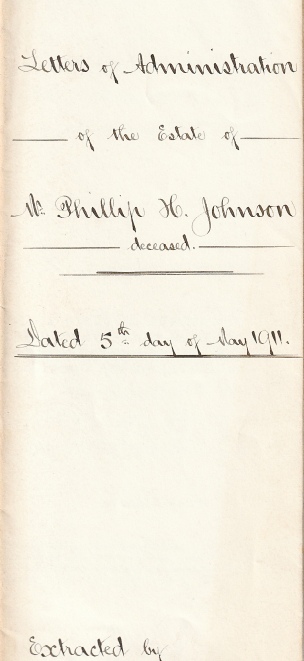 Letters of Administration
of the Estate of
Mr Phillip H. Johnson
deceased.
Dated 5th day of May 1911.
Extracted by